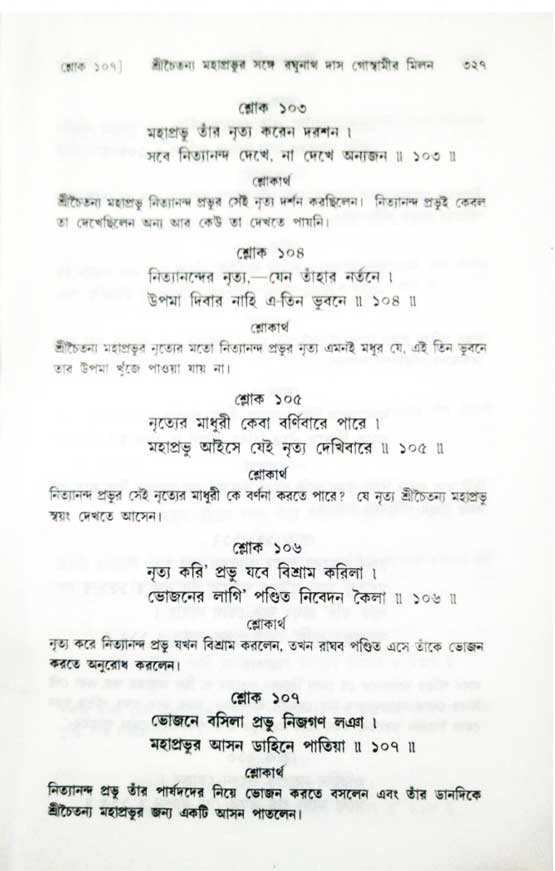 শ্লোক ১০৭]	শ্রীচৈতন্য মহাপ্রভুর সঙ্গে রঘুনাথ দাস গোস্বামীর মিলন	৩২৭
শ্লোক ১০৩
মহাপ্রভু তাঁর নৃত্য করেন দরশন ।
সবে নিত্যানন্দ দেখে, না দেখে অন্যজন ॥ ১০৩ ॥
শ্লোকার্থ
শ্রীচৈতন্য মহাপ্রভু নিত্যানন্দ প্রভুর সেই নৃত্য দর্শন করছিলেন। নিত্যানন্দ প্রভুই কেবল
তা দেখেছিলেন অন্য আর কেউ তা দেখতে পায়নি।
শ্লোক ১০৪
নিত্যানন্দের নৃত্য,—যেন তাঁহার নর্তনে ।
উপমা দিবার নাহি এ-তিন ভুবনে ॥ ১০৪ ॥
শ্লোকার্থ
শ্রীচৈতন্য মহাপ্রভুর নৃত্যের মতো নিত্যানন্দ প্রভুর নৃত্য এমনই মধুর যে, এই তিন ভুবনে
তার উপমা খুঁজে পাওয়া যায় না।
শ্লোক ১০৫
নৃত্যের মাধুরী কেবা বর্ণিবারে পারে ।
মহাপ্রভু আইসে যেই নৃত্য দেখিবারে ॥ ১০৫ ॥
শ্লোকার্থ
নিত্যানন্দ প্রভুর সেই নৃত্যের মাধুরী কে বর্ণনা করতে পারে? যে নৃত্য শ্রীচৈতন্য মহাপ্রভু
স্বয়ং দেখতে আসেন।
শ্লোক ১০৬
নৃত্য করি' প্রভু যবে বিশ্রাম করিলা ।
ভোজনের লাগি' পণ্ডিত নিবেদন কৈলা ॥ ১০৬ ॥
শ্লোকার্থ
নৃত্য করে নিত্যানন্দ প্রভু যখন বিশ্রাম করলেন, তখন রাঘব পণ্ডিত এসে তাঁকে ভোজন
করতে অনুরোধ করলেন।
শ্লোক ১০৭
ভোজনে বসিলা প্রভু নিজগণ লঞা ।
মহাপ্রভুর আসন ডাহিনে পাতিয়া ॥ ১০৭ ॥
শ্লোকার্থ
নিত্যানন্দ প্রভু তাঁর পার্ষদদের নিয়ে ভোজন করতে বসলেন এবং তাঁর ডানদিকে
শ্রীচৈতন্য মহাপ্রভুর জন্য একটি আসন পাতলেন।